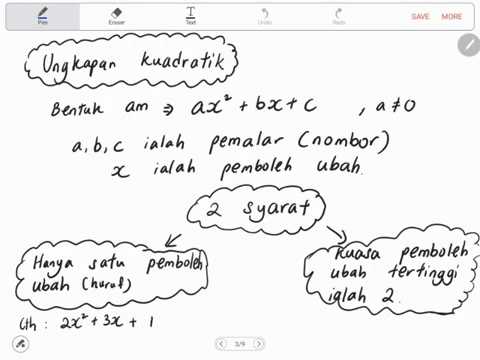 Pen
Eraser
Text
Undo
Redo
SAVE
MORE
Ungkapan kuadratik
Bentuk am ⇒ ax² + bx + c , a ≠ 0
a, b, c ialah pemalar (nombor)
x ialah pemboleh ubah.
2 syarat
Hanya satu pemboleh
ubah (huruf)
kuasa pemboleh
ubah tertinggi
ialah 2.
Cth : 2x² + 3x + 1
3/9